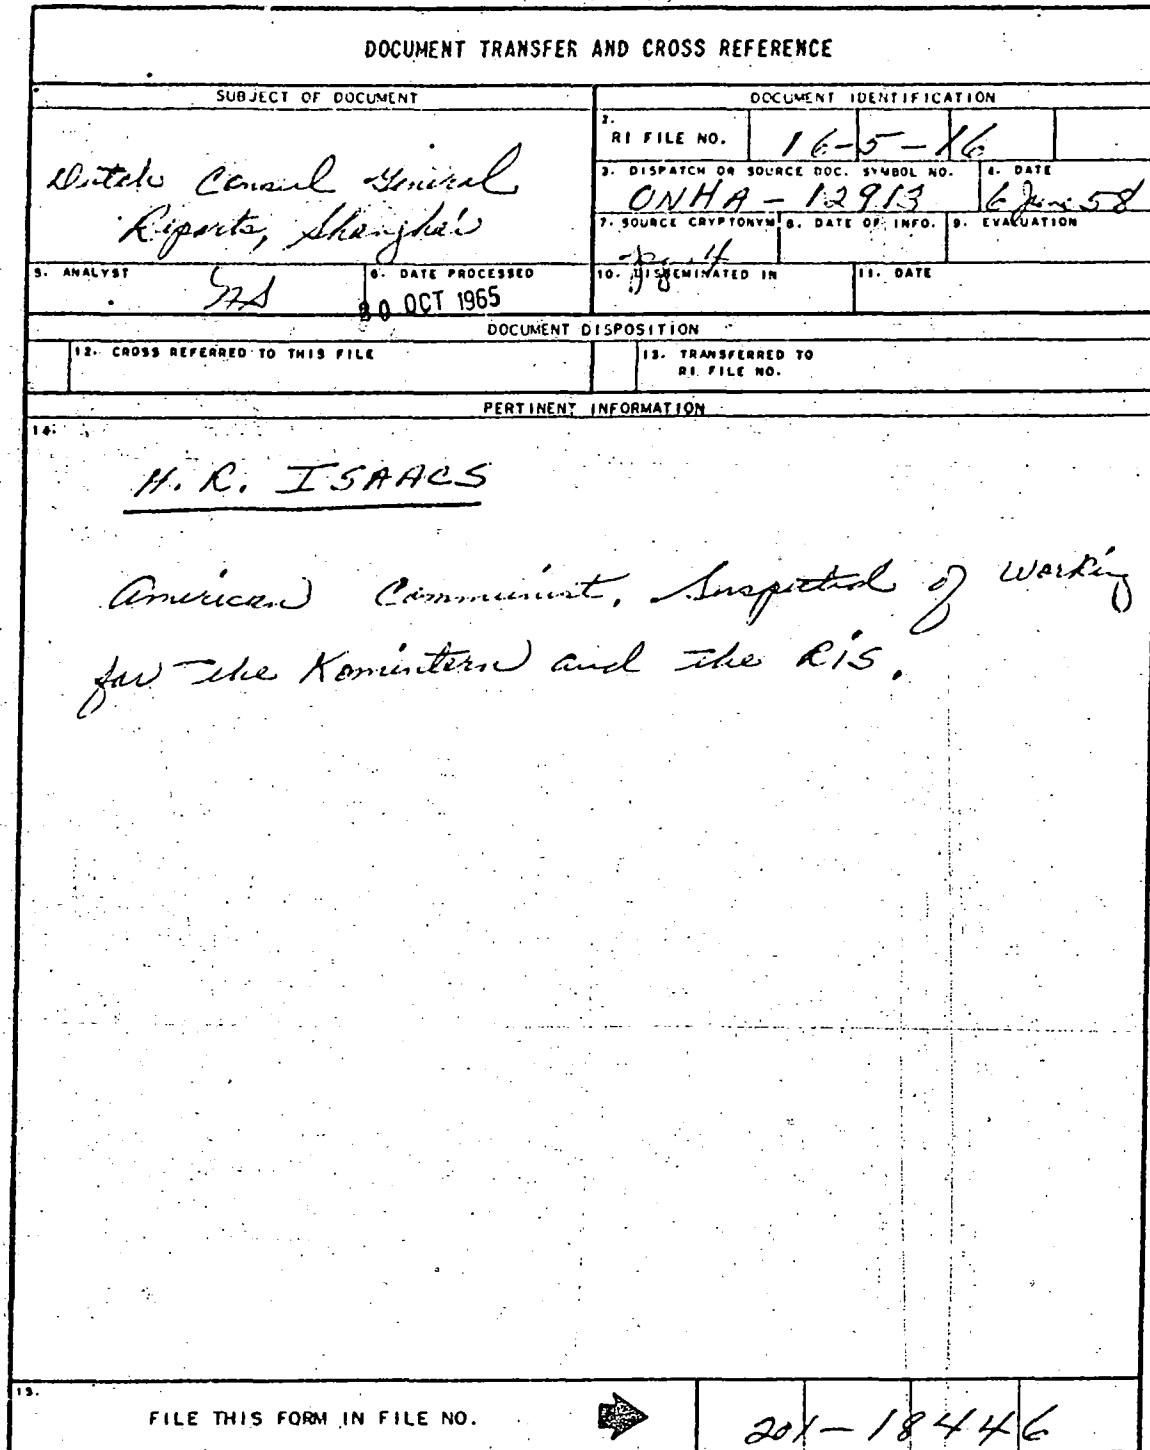 DOCUMENT TRANSFER AND CROSS REFERENCE
SUBJECT OF DOCUMENT
DOCUMENT IDENTIFICATION
Dutch Consul General
Reports, Shanghai
2. RI FILE NO. 16-5-16
3. DISPATCH OR SOURCE DOC. SYMBOL NO. 4. DATE
ONHA-12913 6 June 58
7. SOURCE CRYPTONYM 8. DATE OF INFO. 9. EVALUATION
5. ANALYST 6. DATE PROCESSED
OCT 1965
10. DISSEMINATED IN 11. DATE
DOCUMENT DISPOSITION
12. CROSS REFERRED TO THIS FILE
13. TRANSFERRED TO
RI FILE NO.
PERTINENT INFORMATION
14.
H. R. ISAACS
American Communist, Suspected of Working
for the Komintern and the RIS.
15.
FILE THIS FORM IN FILE NO. 201-18446